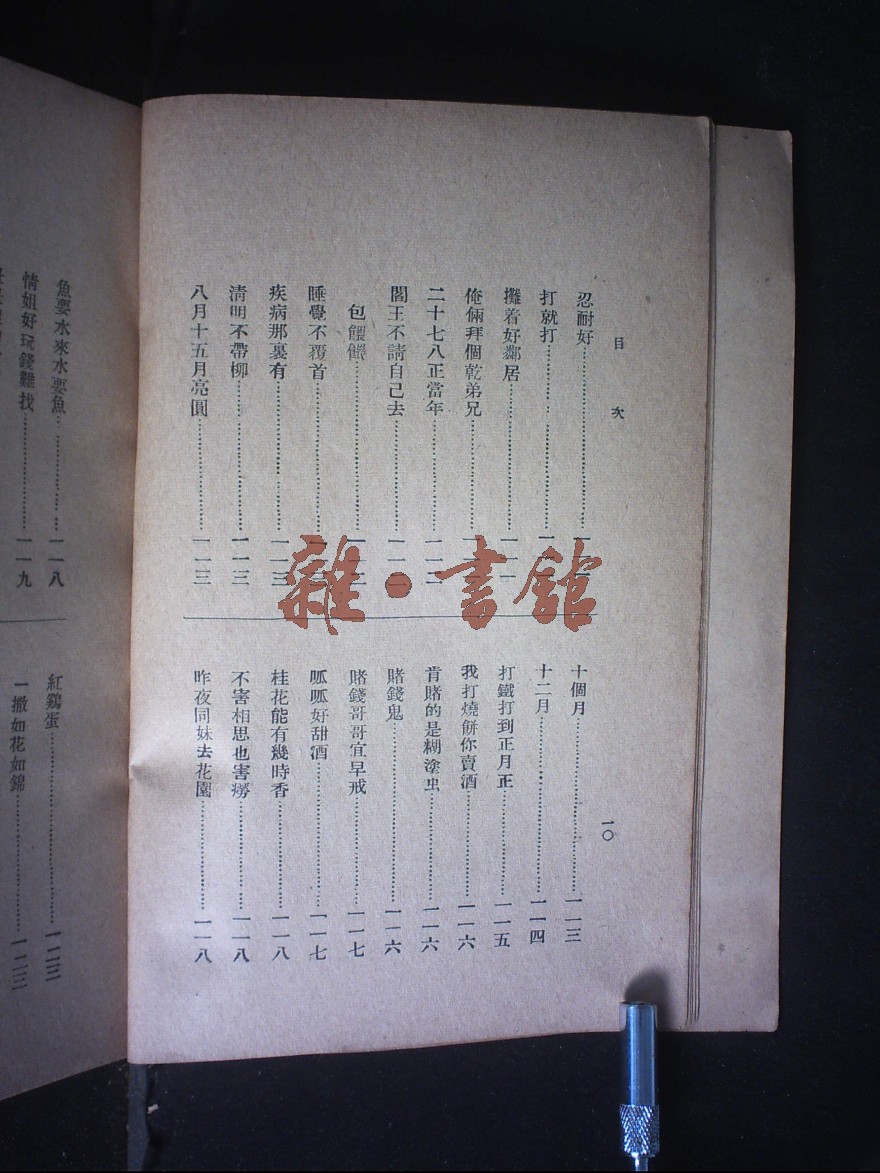 目次
一〇
忍耐好
打就打
攤着好鄰居
俺倆拜個乾弟兄
二十七八正當年
閻王不請自己去
包餵飽
睡覺不覆首
疾病那裏有 一一三
清明不帶柳 一一三
八月十五月亮圓 一一三
十個月 一一三
十二月 一一四
打鐵打到正月正 一一五
我打燒餅你賣酒 一一六
肯賭的是糊塗虫 一一六
賭錢鬼 一一六
賭錢哥哥宜早戒 一一七
呱呱好甜酒 一一七
桂花能有幾時香 一一八
不害相思也害癆 一一八
昨夜同妹去花園 一一八
魚要水來水要魚 一一八
情姐好玩錢難找 一一九
紅鷄蛋 一二三
一撒如花如錦 一二三
雜·書館